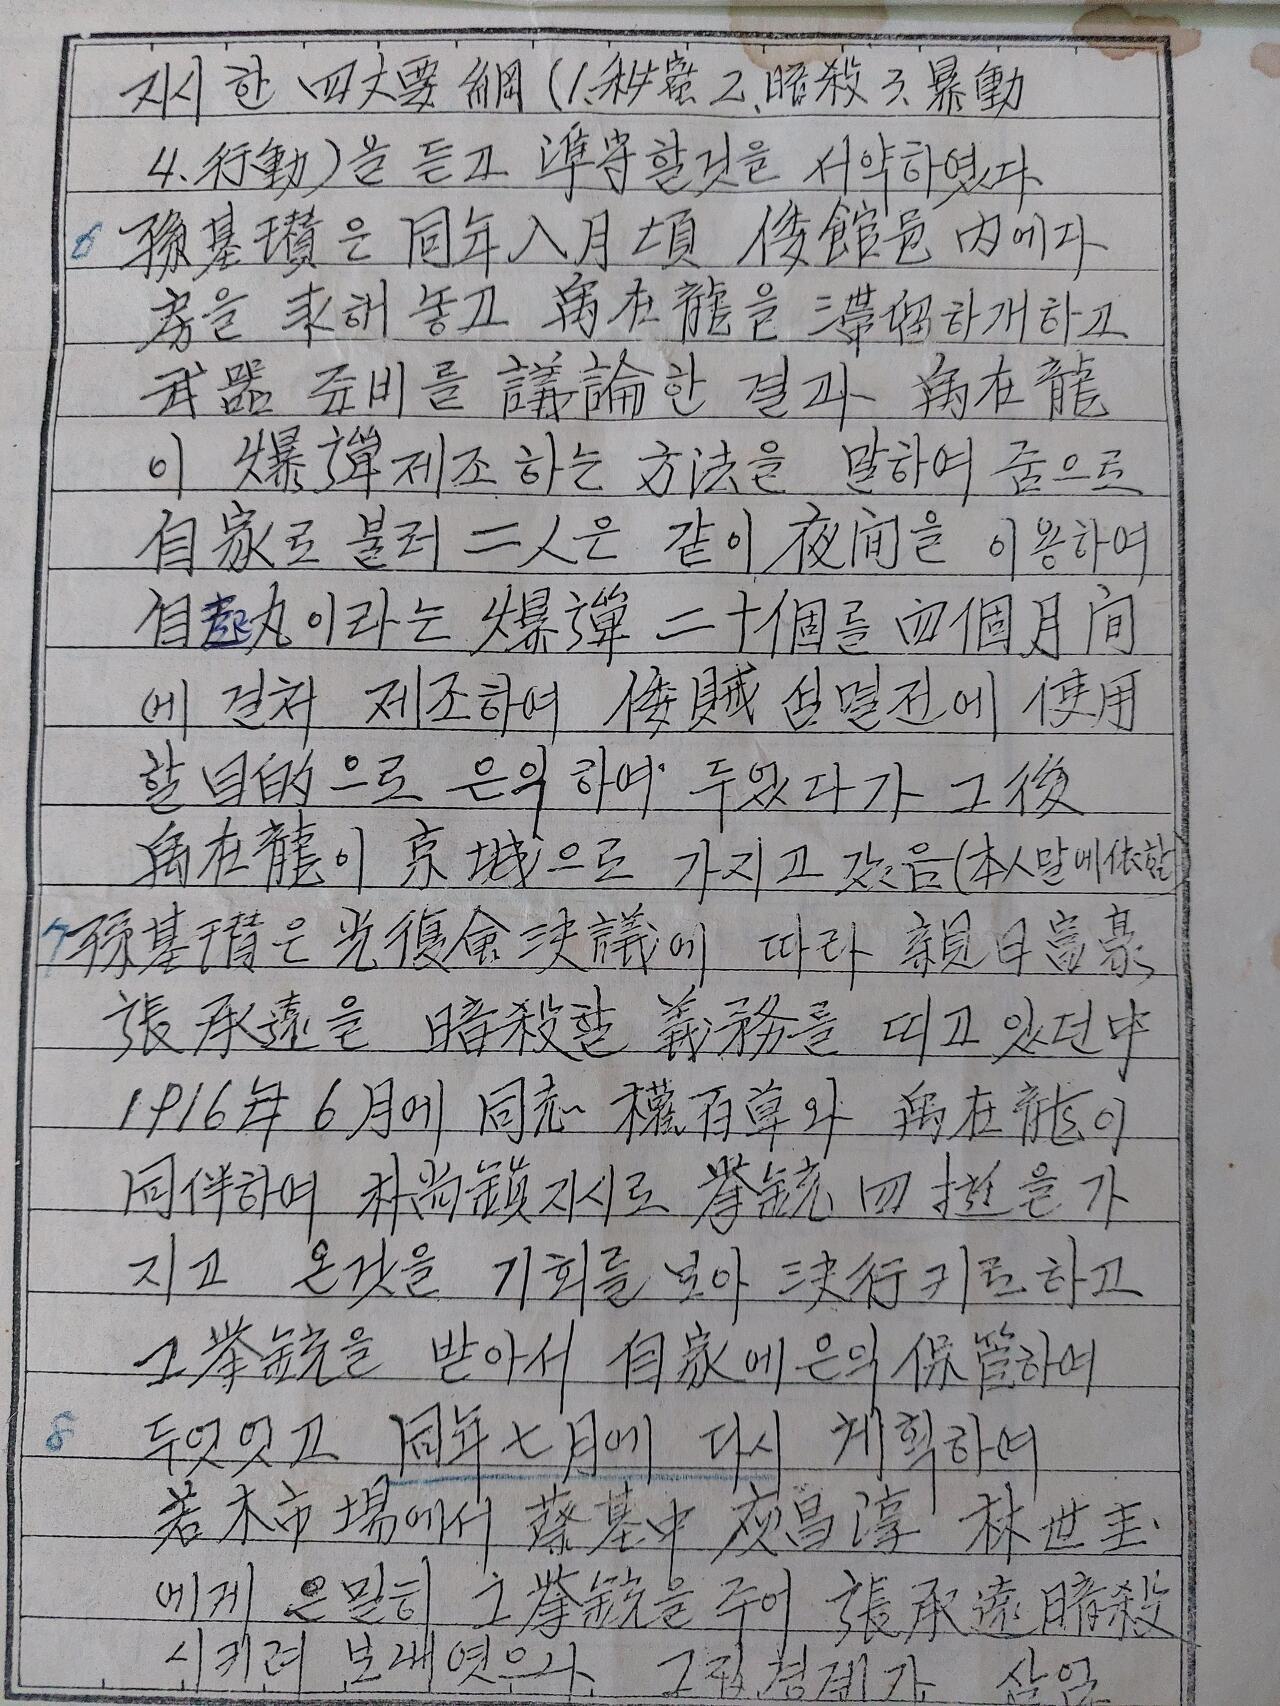 지시한 四大要綱(1.秘密 2.暗殺 3.暴動
4.行動)을 듣고 準守할것을 서약하였다
6 孫基瓚은 同年八月頃 倭館邑 內에다
房을 求해 놓고 禹在龍을 滯留하개하고
武器 준비를 議論한 결과 禹在龍
이 爆彈제조하는 方法을 말하여 줌으로
自家로 불러 二人은 같이 夜间을 이용하여
自起丸이라는 爆彈 二十個를 四個月间
에 걸처 제조하여 倭賊 섬멸전에 使用
할 目的으로 은익하여 두었다가 그 後
禹在龍이 京城으로 가지고 갔음(本人말에依함)
7 孫基瓚은 光復会決議에 따라 親日富豪
張承遠을 暗殺할 義務를 띠고 있던中
1916年 6月에 同志 權百草와 禹在龍이
同伴하여 朴尚鎮지시로 拳銃 四挺을 가
지고 온것을 기회를 보아 決行키로하고
그拳銃을 받아서 自家에 은익 保管하여
8 두엇잇고 同年七月에 다시 계획하여
若木市場에서 蔡基中 庾昌淳 林世圭
에게 은밀히 그拳銃을 주어 張承遠暗殺
시키려 보내엿으나 경계가